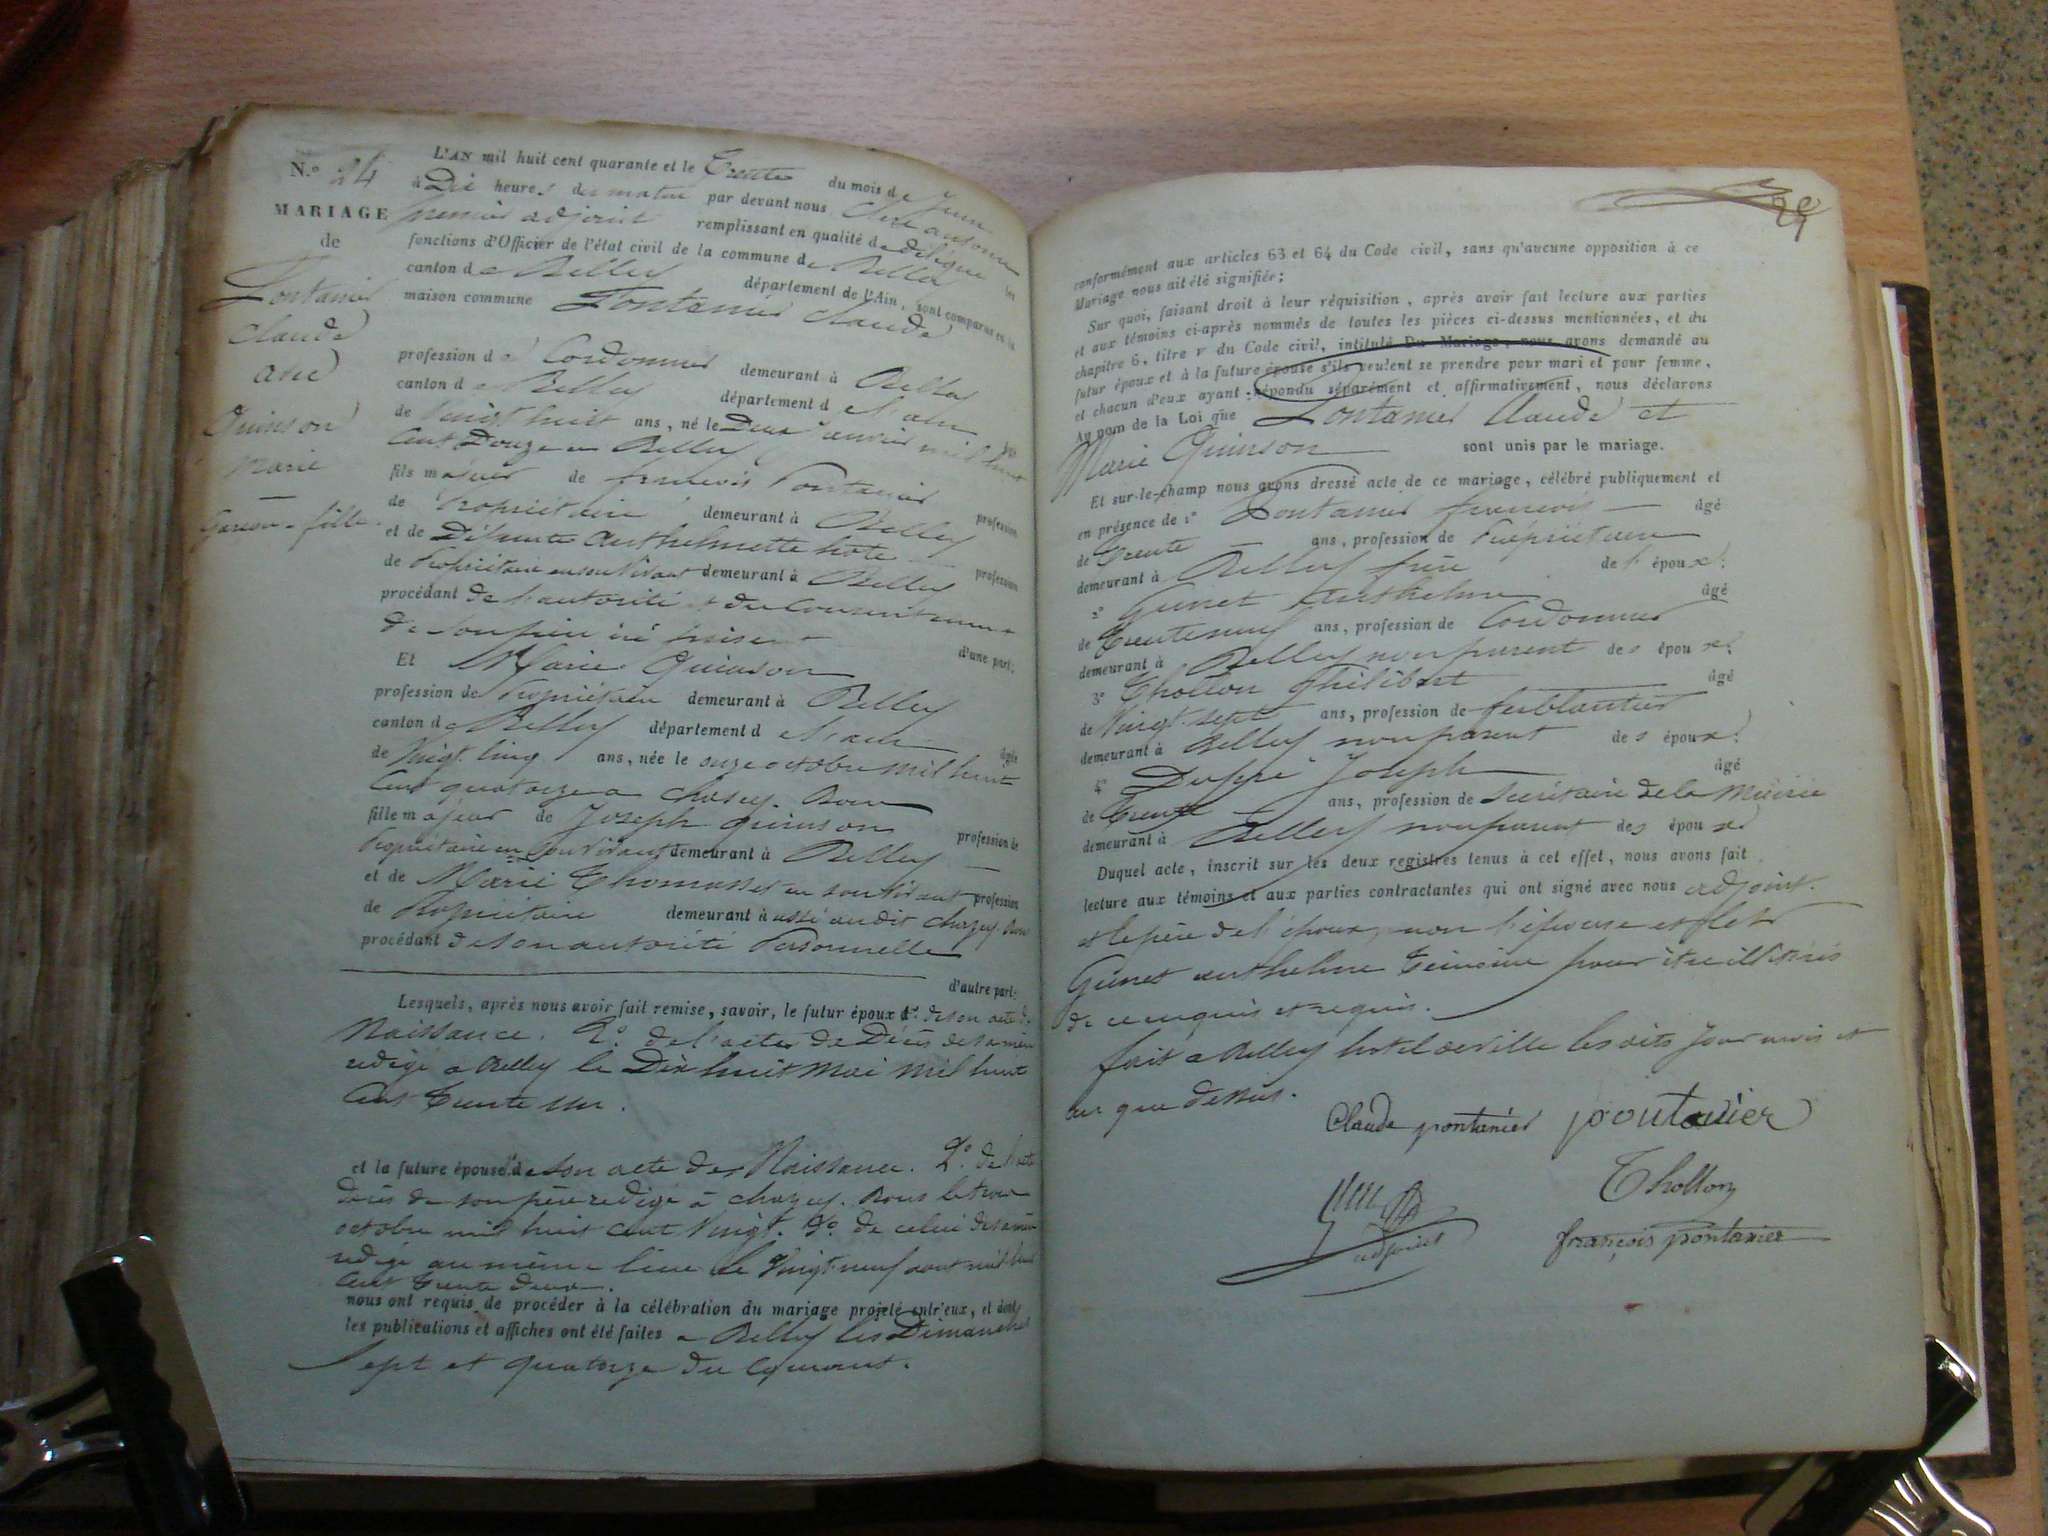 N.º 24
MARIAGE
de
Pontanier
Claude
avec
Quinson
Marie
garçon - fille.
L'AN mil huit cent quarante et le Trente du mois de Juin
à Dix heures du matin par devant nous
premier adjoint remplissant en qualité de délégué les
fonctions d'Officier de l'état civil de la commune de Belley
canton de Belley département de l'Ain, sont comparus en la
maison commune Pontanier Claude
profession de Cordonnier demeurant à Belley
canton de Belley département de l'ain âgé
de vingt huit ans, né le Deux Janvier mil huit
Cent Douze à Belley
fils majeur de françois Pontanier profession
de Propriétaire demeurant à Belley
et de Défunte Anthelmette hote profession
de Propriétaire en son vivant demeurant à Belley
procédant de l'autorité et du Consentement
de Son père ici présent d'une part;
Et Marie Quinson
profession de Propriétaire demeurant à Belley
canton de Belley département de l'ain âgée
de Vingt-cinq ans, née le seize octobre mil huit
Cent quatorze à Chazey-Bons
fille majeur de Joseph Quinson profession de
Propriétaire en Son vivant demeurant à Belley
et de Marie Thomasset en son vivant profession
de Propriétaire demeurant à audit Chazey-Bons
procédant de son autorité Personnelle
d'autre part;
Lesquels, après nous avoir fait remise, savoir, le futur époux 1º de son acte de
Naissance. 2º de l'acte de Décès de sa mère
rédigé à Belley le Dix huit mai mil huit
Cent Trente un.
et la future épouse 1º de Son acte de Naissance. 2º de l'acte
décès de son père rédigé à Chazey-Bons le trois
octobre mil huit Cent Vingt. 3º de celui de sa mère
rédigé au même lieu le Vingt-neuf aout mil huit
Cent Trente deux.
nous ont requis de procéder à la célébration du mariage projeté entr'eux, et dont
les publications et affiches ont été faites à Belley les Dimanches
Sept et quatorze du Courant.
29
conformément aux articles 63 et 64 du Code civil, sans qu'aucune opposition à ce
Mariage nous ait été signifiée;
Sur quoi, faisant droit à leur réquisition, après avoir fait lecture aux parties
et aux témoins ci-après nommés de toutes les pièces ci-dessus mentionnées, et du
chapitre 6, titre v du Code civil, intitulé Du Mariage, nous avons demandé au
futur époux et à la future épouse s'ils veulent se prendre pour mari et pour femme,
et chacun d'eux ayant répondu séparément et affirmativement, nous déclarons
Au nom de la Loi que Pontanier Claude et
Marie Quinson sont unis par le mariage.
Et sur-le-champ nous avons dressé acte de ce mariage, célébré publiquement et
en présence de 1º Pontanier françois âgé
de Trente ans, profession de Propriétaire
demeurant à Belley frère de l'époux;
2º Guinet Anthelme âgé
de Trente neuf ans, profession de Cordonnier
demeurant à Belley non parent des époux;
3º Thollon Philibert âgé
de Vingt-sept ans, profession de ferblantier
demeurant à Belley non parent des époux;
4º Dupré Joseph âgé
de Trente ans, profession de Secrétaire de la Mairie
demeurant à Belley non parent des époux
Duquel acte, inscrit sur les deux registres tenus à cet effet, nous avons fait
lecture aux témoins et aux parties contractantes qui ont signé avec nous adjoint.
et le père de l'époux, non l'épouse et
Guinet anthelme témoin pour être illitérés
de ce enquis et requis.
fait à Belley hotel de ville les dits jour mois et
an que dessus.
Claude pontanier pontanier
Thollon
adjoint
françois pontanier